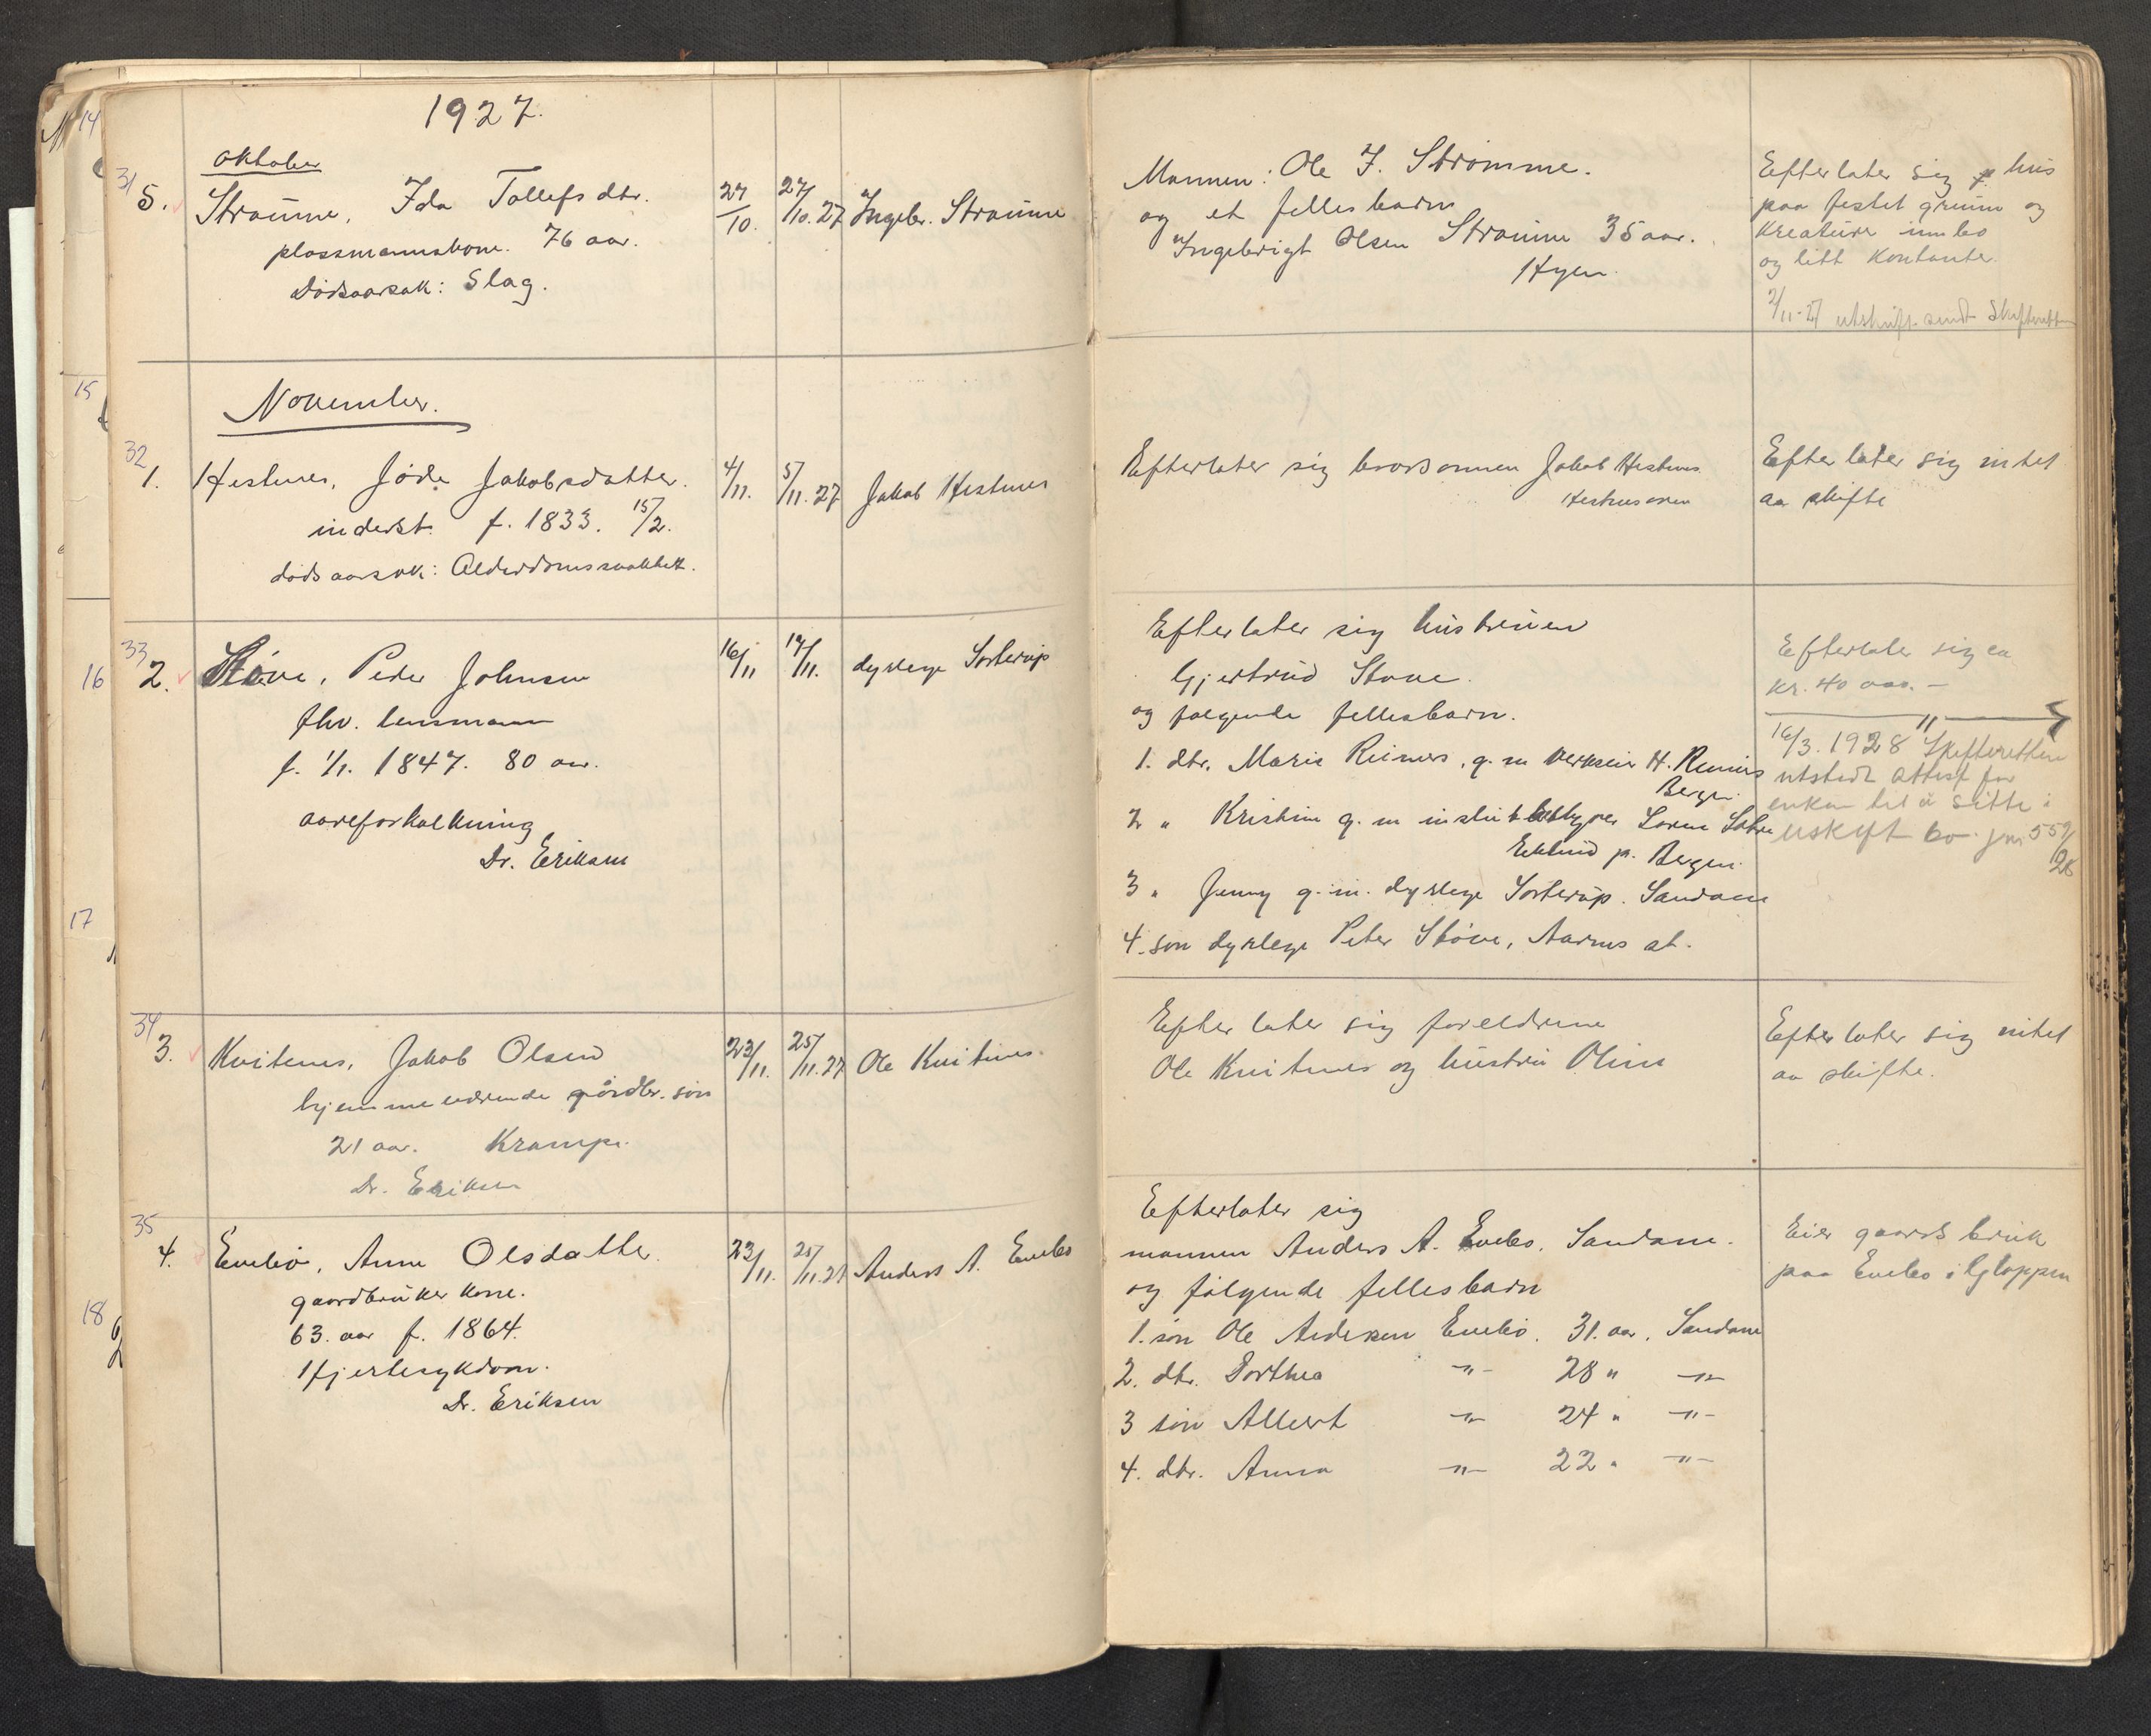 1927.
Oktober
31
5. Straume, Ida Tollefsdtr. 27/10. 27/10.27 Ingebr. Straume
plassmannskone. 76 aar.
Dødsaarsak: Slag.
Mannen: Ole J. Strømme.
og et fellesbarn
Ingebrigt Olsen Straume 35 aar.
Hyen.
Efterlater sig hus
paa festet grunn og
kreature innbo
og litt kontanter.
2/11-27 utskrift sendt Skifteretten
November.
32
1. Hestnes, Jøda Jakobsdatter. 4/11. 5/11.27 Jakob Hestnes
inderst. f. 1833. 15/2.
dødsaarsak: Alderdomssvakhet.
Efterlater sig brorsønnen Jakob Hestnes
Efterlater sig intet
aa skifte
33
2. Støve, Peder Johnsen 16/11 17/11. dyrlege Sorterup
fhv. lensmann
f. 1/1. 1847. 80 aar.
aareforkalkning
Dr. Eriksen
Efterlater sig hustruen
Gjertrud Støve.
og følgende fellesbarn.
1. dtr. Marie Reimers, g. m H. Reimers
Bergen.
2 " Kristine g. m
p. Bergen.
3 " Jenny g. m. dyrlege Sorterup. Sandane
4. søn dyrlege Peter Støve, Aarnes st.
Efterlater sig ca
kr. 40 000.-
"
16/3. 1928 Skifteretten
utstedt attest for
enken til å sitte i
uskift bo. jnr 559/
28
34
3. Kvitenes, Jakob Olsen 23/11. 25/11.27 Ole Kvitenes.
hjemmeværende gårdbr. søn
21 aar. Krampe.
Dr. Eriksen
Efterlater sig foreldrene
Ole Kvitenes og hustru Oline
Efterlater sig intet
aa skifte.
35
4. Evebø, Anne Olsdatter. 23/11. 25/11.27 Anders A. Evebø
gaardbruker kone.
63. aar f. 1864.
Hjertesykdom.
Dr. Eriksen
Efterlater sig
mannen Anders A. Evebø. Sandane.
og følgende fellesbarn
1. søn Ole Andersen Evebø. 31. aar. Sandane
2. dtr. Dorthea -"- 28 " -"-
3 søn Albert -"- 24 " -"-
4. dtr. Anna -"- 22 " -"-
Eier gaardsbruk
paa Evebø i Gloppen
14
15
16
17
18